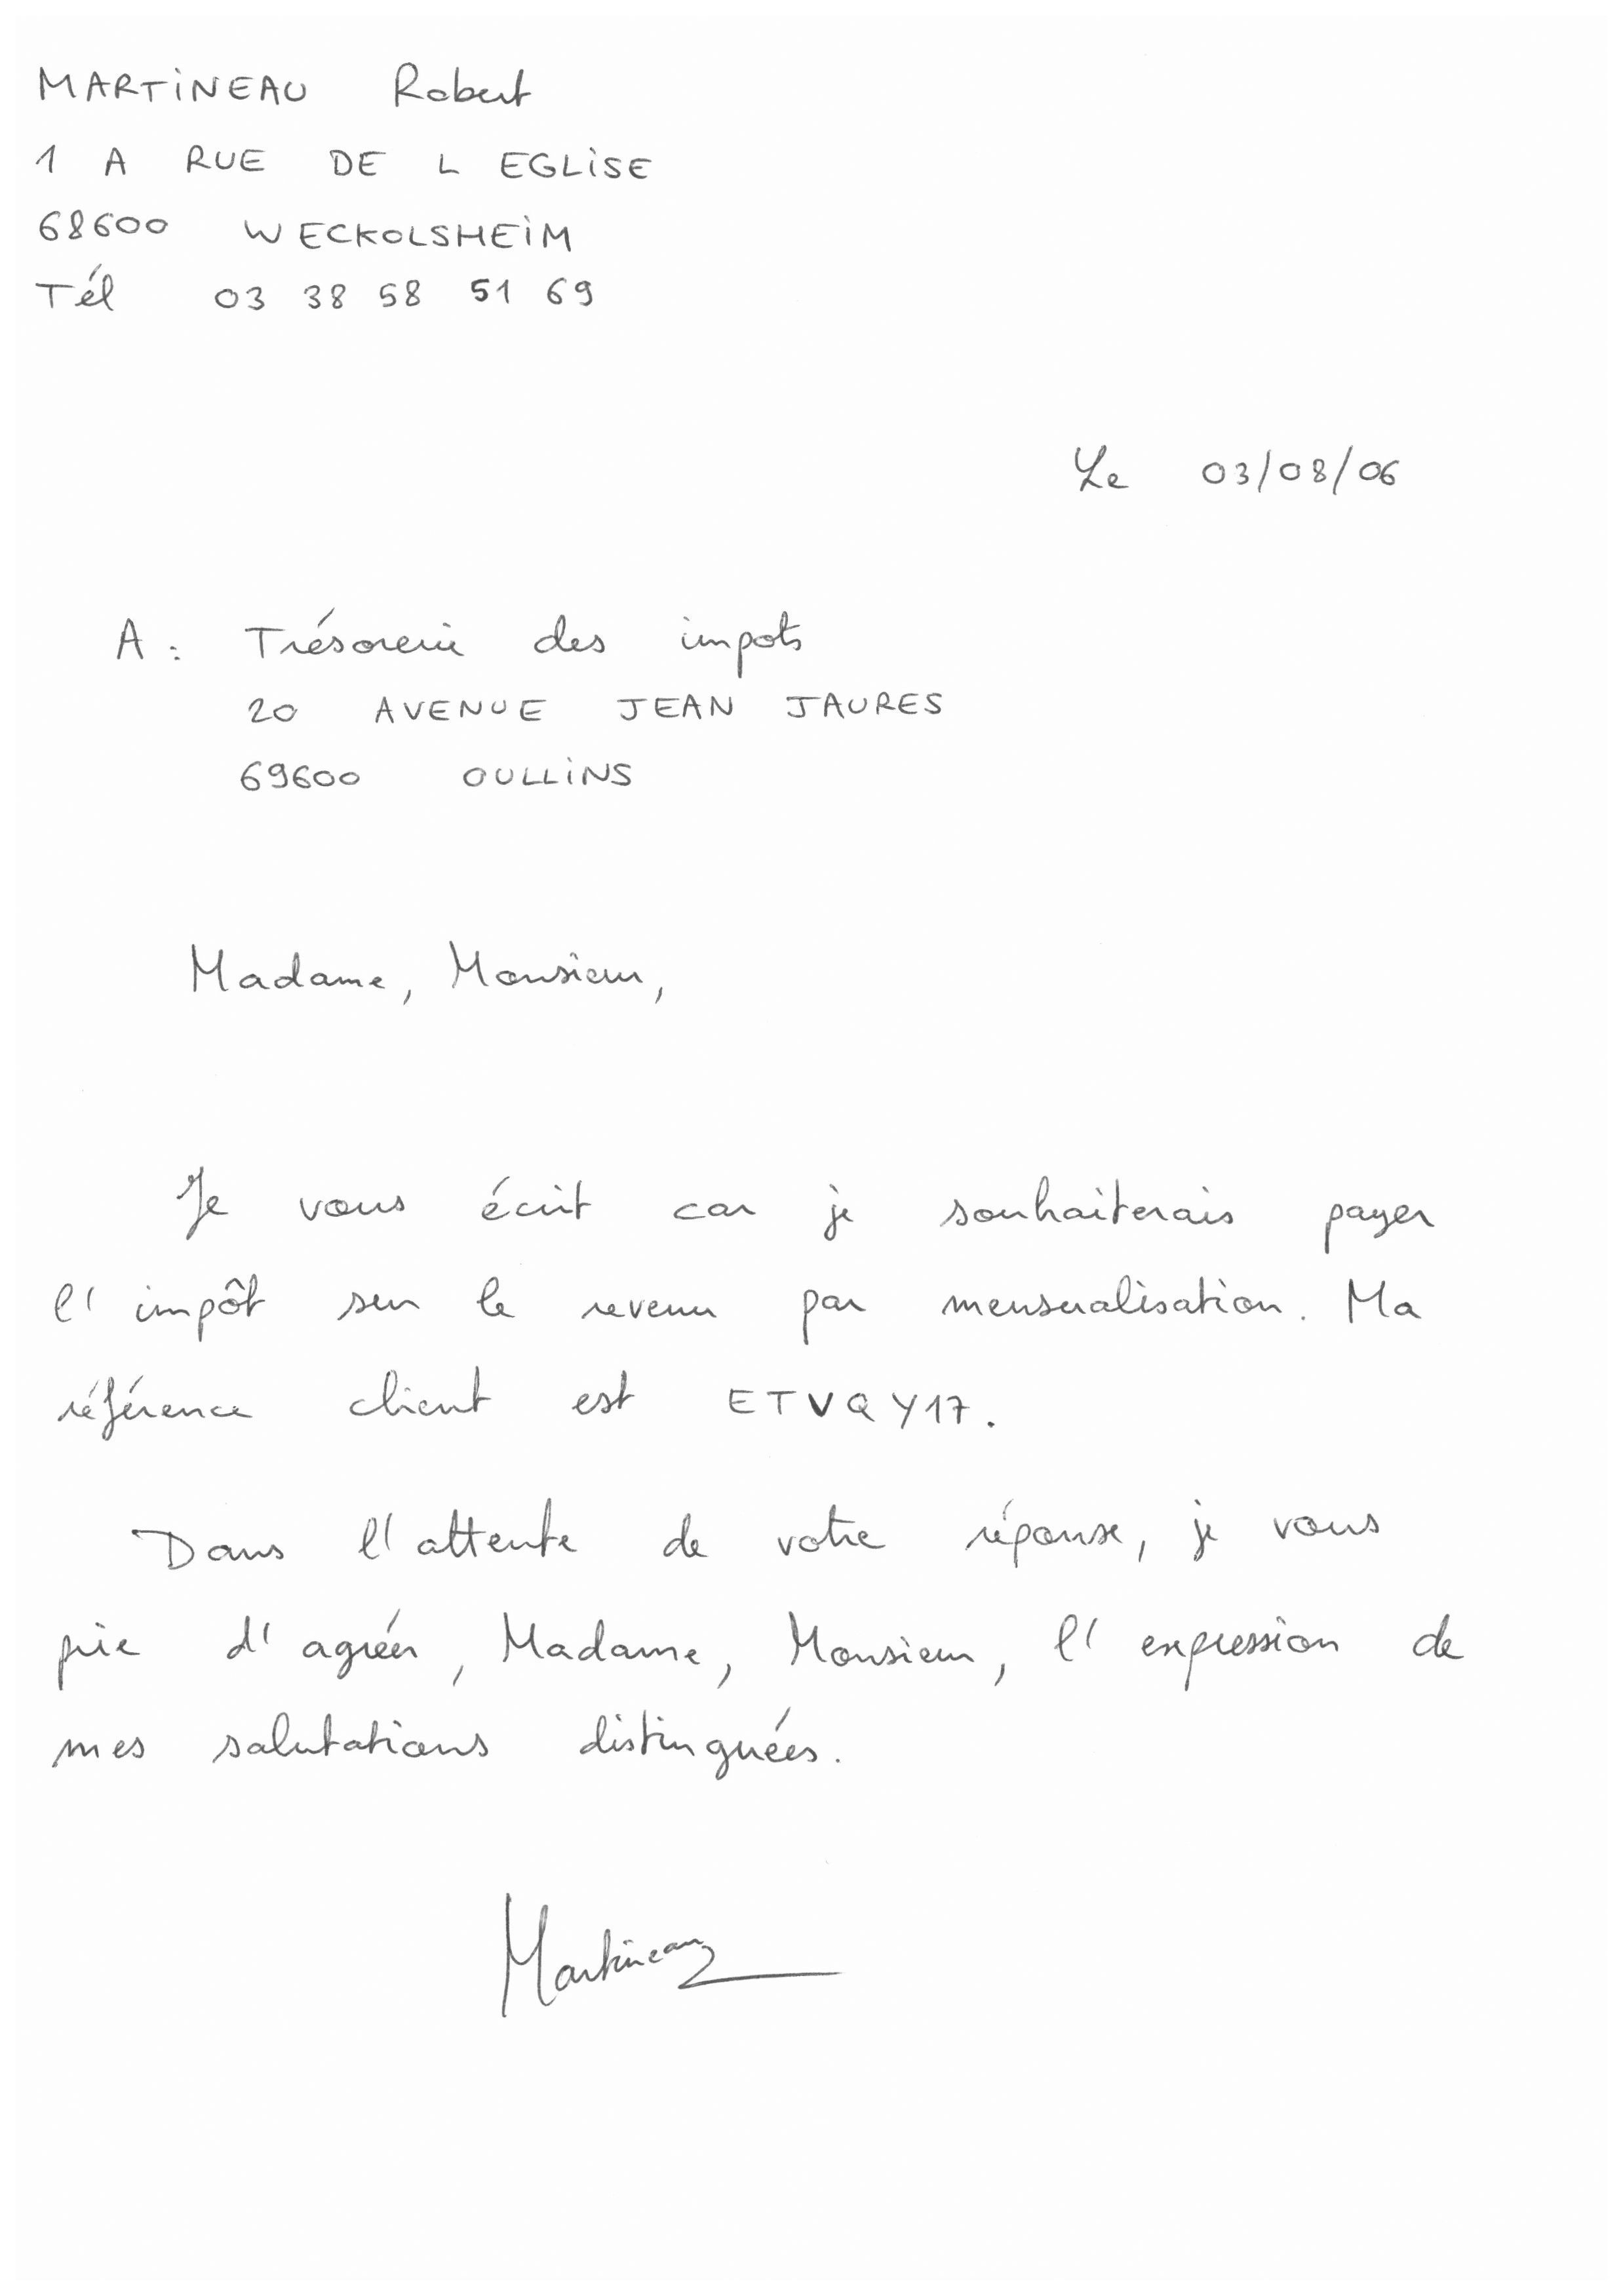 MARTINEAU Robert
1 A RUE DE L EGLISE
68600 WECKOLSHEIM
Tél 03 38 58 51 69
Le 03/08/06
A : Trésorerie des impots
20 AVENUE JEAN JAURES
69600 OULLINS
Madame, Monsieur,
Je vous écrit car je souhaiterais payer
l'impôt sur le revenu par mensualisation. Ma
référence client est ETVQY17.
Dans l'attente de votre réponse, je vous
prie d'agréer, Madame, Monsieur, l'expression de
mes salutations distinguées.
Martineau